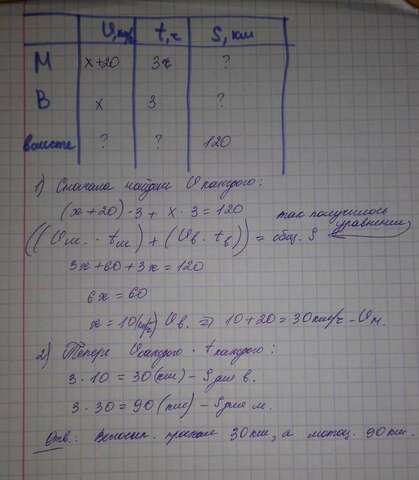 V, км/ч t, ч S, км
М x+20 3ч ?
В x 3 ?
вместе ? ? 120
1) Сначала найдём V каждого:
(x+20)·3 + x·3 = 120
так получилось уравнение
((Vм. · tм) + (Vв. · tв)) = общ. S
3x+60+3x=120
6x=60
x=10(км/ч) Vв. ⇒ 10+20=30км/ч - Vм.
2) Теперь Vкаждого · tкаждого:
3·10=30(км) - S для в.
3·30=90(км) - S для м.
Отв.: Велосип. проехал 30км, а мотоц. 90км.